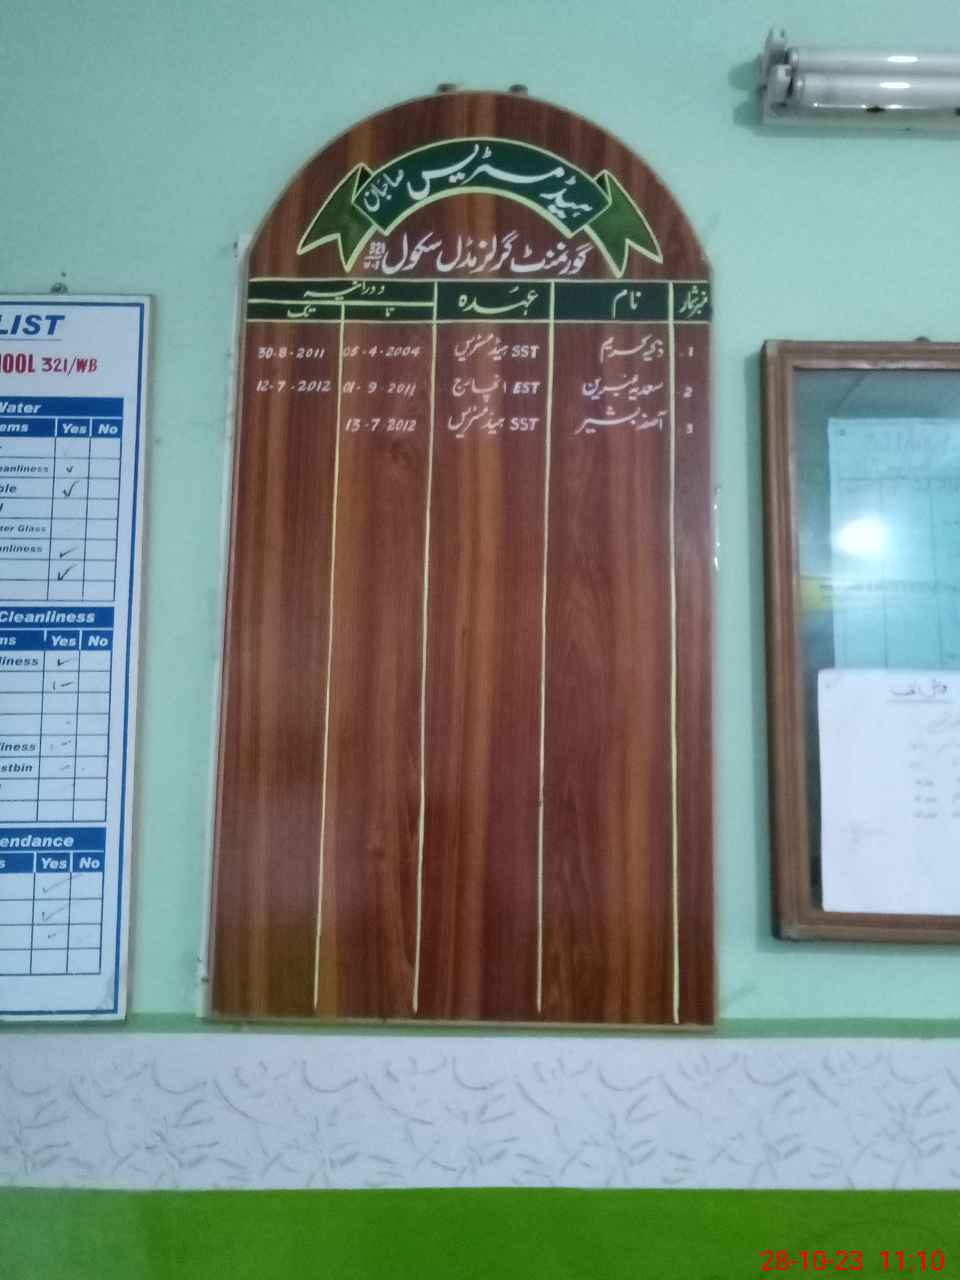 ہیڈ مسٹریس صاحبان
گورنمنٹ گرلز مڈل سکول 321
نمبر شمار نام عہدہ دورانیہ
تا تک
1. SST ہیڈ مسٹریس 05-4-2004 30-8-2011
2 سعدیہ عنبرین EST انچارج 01-9-2011 12-7-2012
3 آصفہ بشیر SST ہیڈ مسٹریس 13-7-2012
LIST
HOOL 321/WB
Water
ems Yes No
eanliness
ble
ter Glass
anliness
Cleanliness
ms Yes No
liness
liness
stbin
endance
s Yes No
28-10-23 11:10